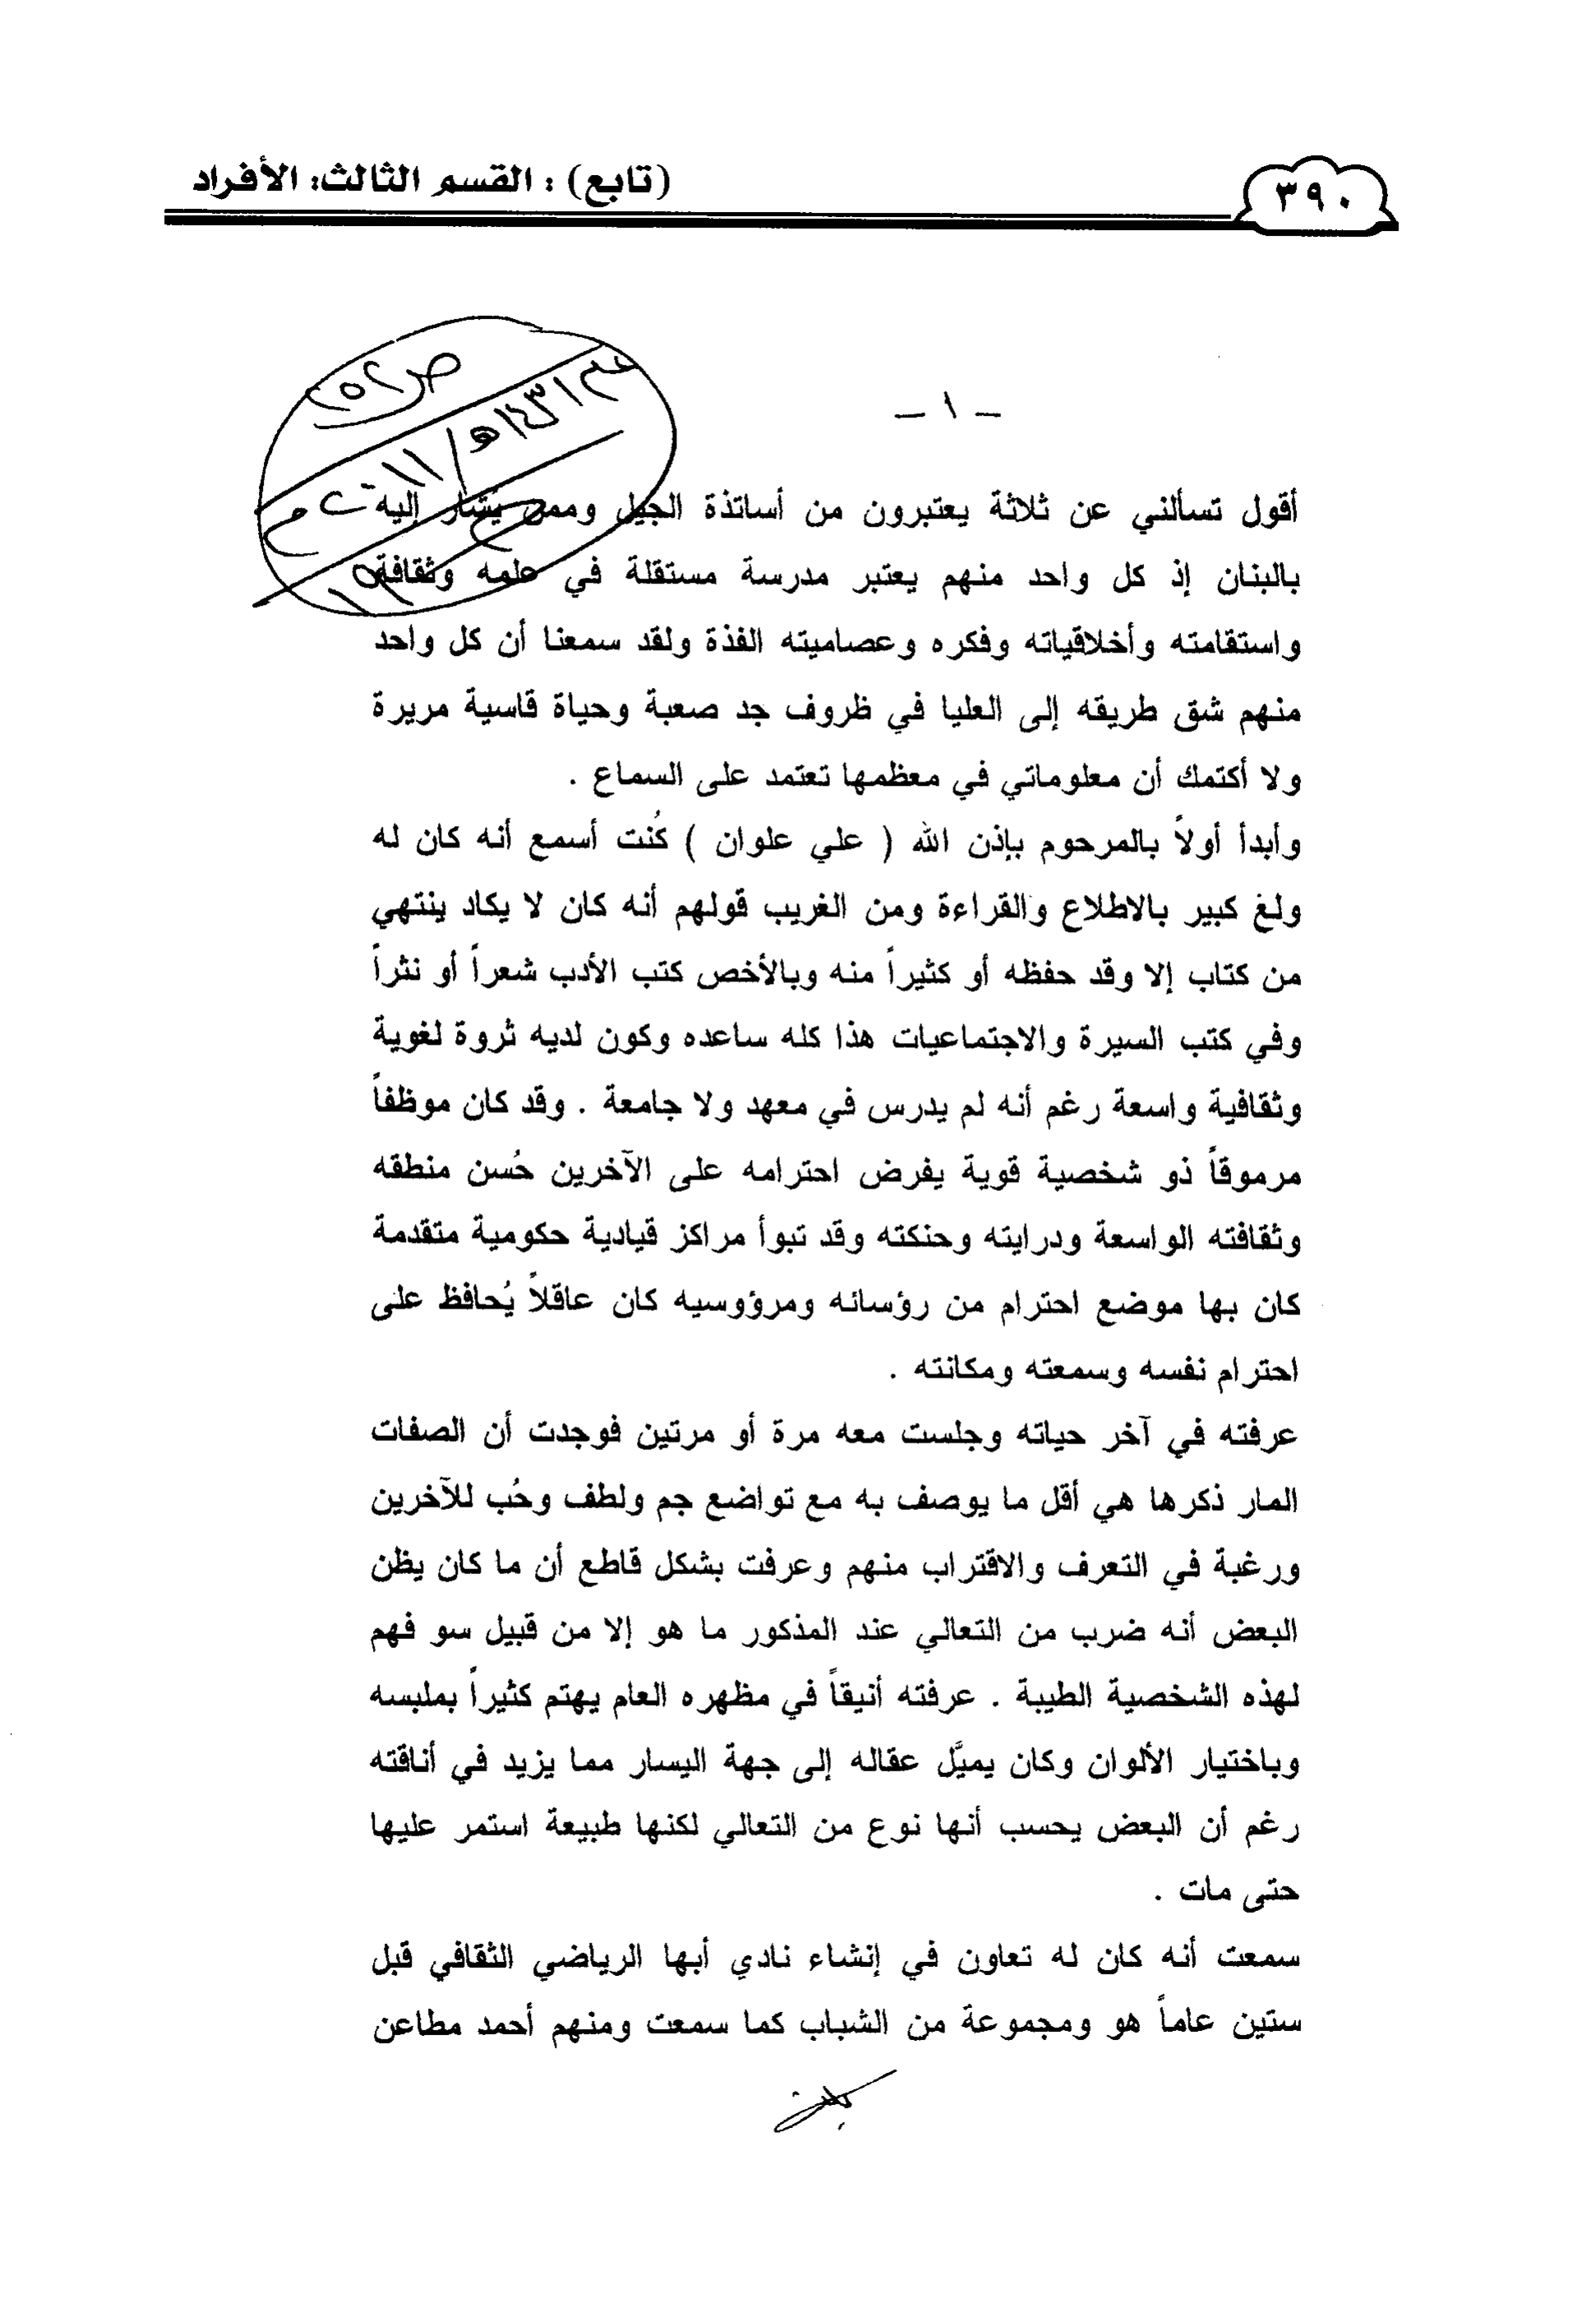 ٣٩٠
(تابع) : القسم الثالث: الأفراد
ص ٢٥٢
١٤٣١هـ / ٢٠١١م
ــ ١ ــ
أقول تسألني عن ثلاثة يعتبرون من أساتذة الجيل وممن يُشار إليه
بالبنان إذ كل واحد منهم يعتبر مدرسة مستقلة في علمه وثقافة
واستقامته وأخلاقياته وفكره وعصاميته الفذة ولقد سمعنا أن كل واحد
منهم شق طريقه إلى العليا في ظروف جد صعبة وحياة قاسية مريرة
ولا أكتمك أن معلوماتي في معظمها تعتمد على السماع .
وأبدأ أولاً بالمرحوم بإذن الله ( علي علوان ) كُنت أسمع أنه كان له
ولغ كبير بالاطلاع والقراءة ومن الغريب قولهم أنه كان لا يكاد ينتهي
من كتاب إلا وقد حفظه أو كثيراً منه وبالأخص كتب الأدب شعراً أو نثراً
وفي كتب السيرة والاجتماعيات هذا كله ساعده وكون لديه ثروة لغوية
وثقافية واسعة رغم أنه لم يدرس في معهد ولا جامعة . وقد كان موظفاً
مرموقاً ذو شخصية قوية يفرض احترامه على الآخرين حُسن منطقه
وثقافته الواسعة ودرايته وحنكته وقد تبوأ مراكز قيادية حكومية متقدمة
كان بها موضع احترام من رؤسائه ومرؤوسيه كان عاقلاً يُحافظ على
احترام نفسه وسمعته ومكانته .
عرفته في آخر حياته وجلست معه مرة أو مرتين فوجدت أن الصفات
المار ذكرها هي أقل ما يوصف به مع تواضع جم ولطف وحُب للآخرين
ورغبة في التعرف والاقتراب منهم وعرفت بشكل قاطع أن ما كان يظن
البعض أنه ضرب من التعالي عند المذكور ما هو إلا من قبيل سو فهم
لهذه الشخصية الطيبة . عرفته أنيقاً في مظهره العام يهتم كثيراً بملبسه
وباختيار الألوان وكان يميَّل عقاله إلى جهة اليسار مما يزيد في أناقته
رغم أن البعض يحسب أنها نوع من التعالي لكنها طبيعة استمر عليها
حتى مات .
سمعت أنه كان له تعاون في إنشاء نادي أبها الرياضي الثقافي قبل
ستين عاماً هو ومجموعة من الشباب كما سمعت ومنهم أحمد مطاعن